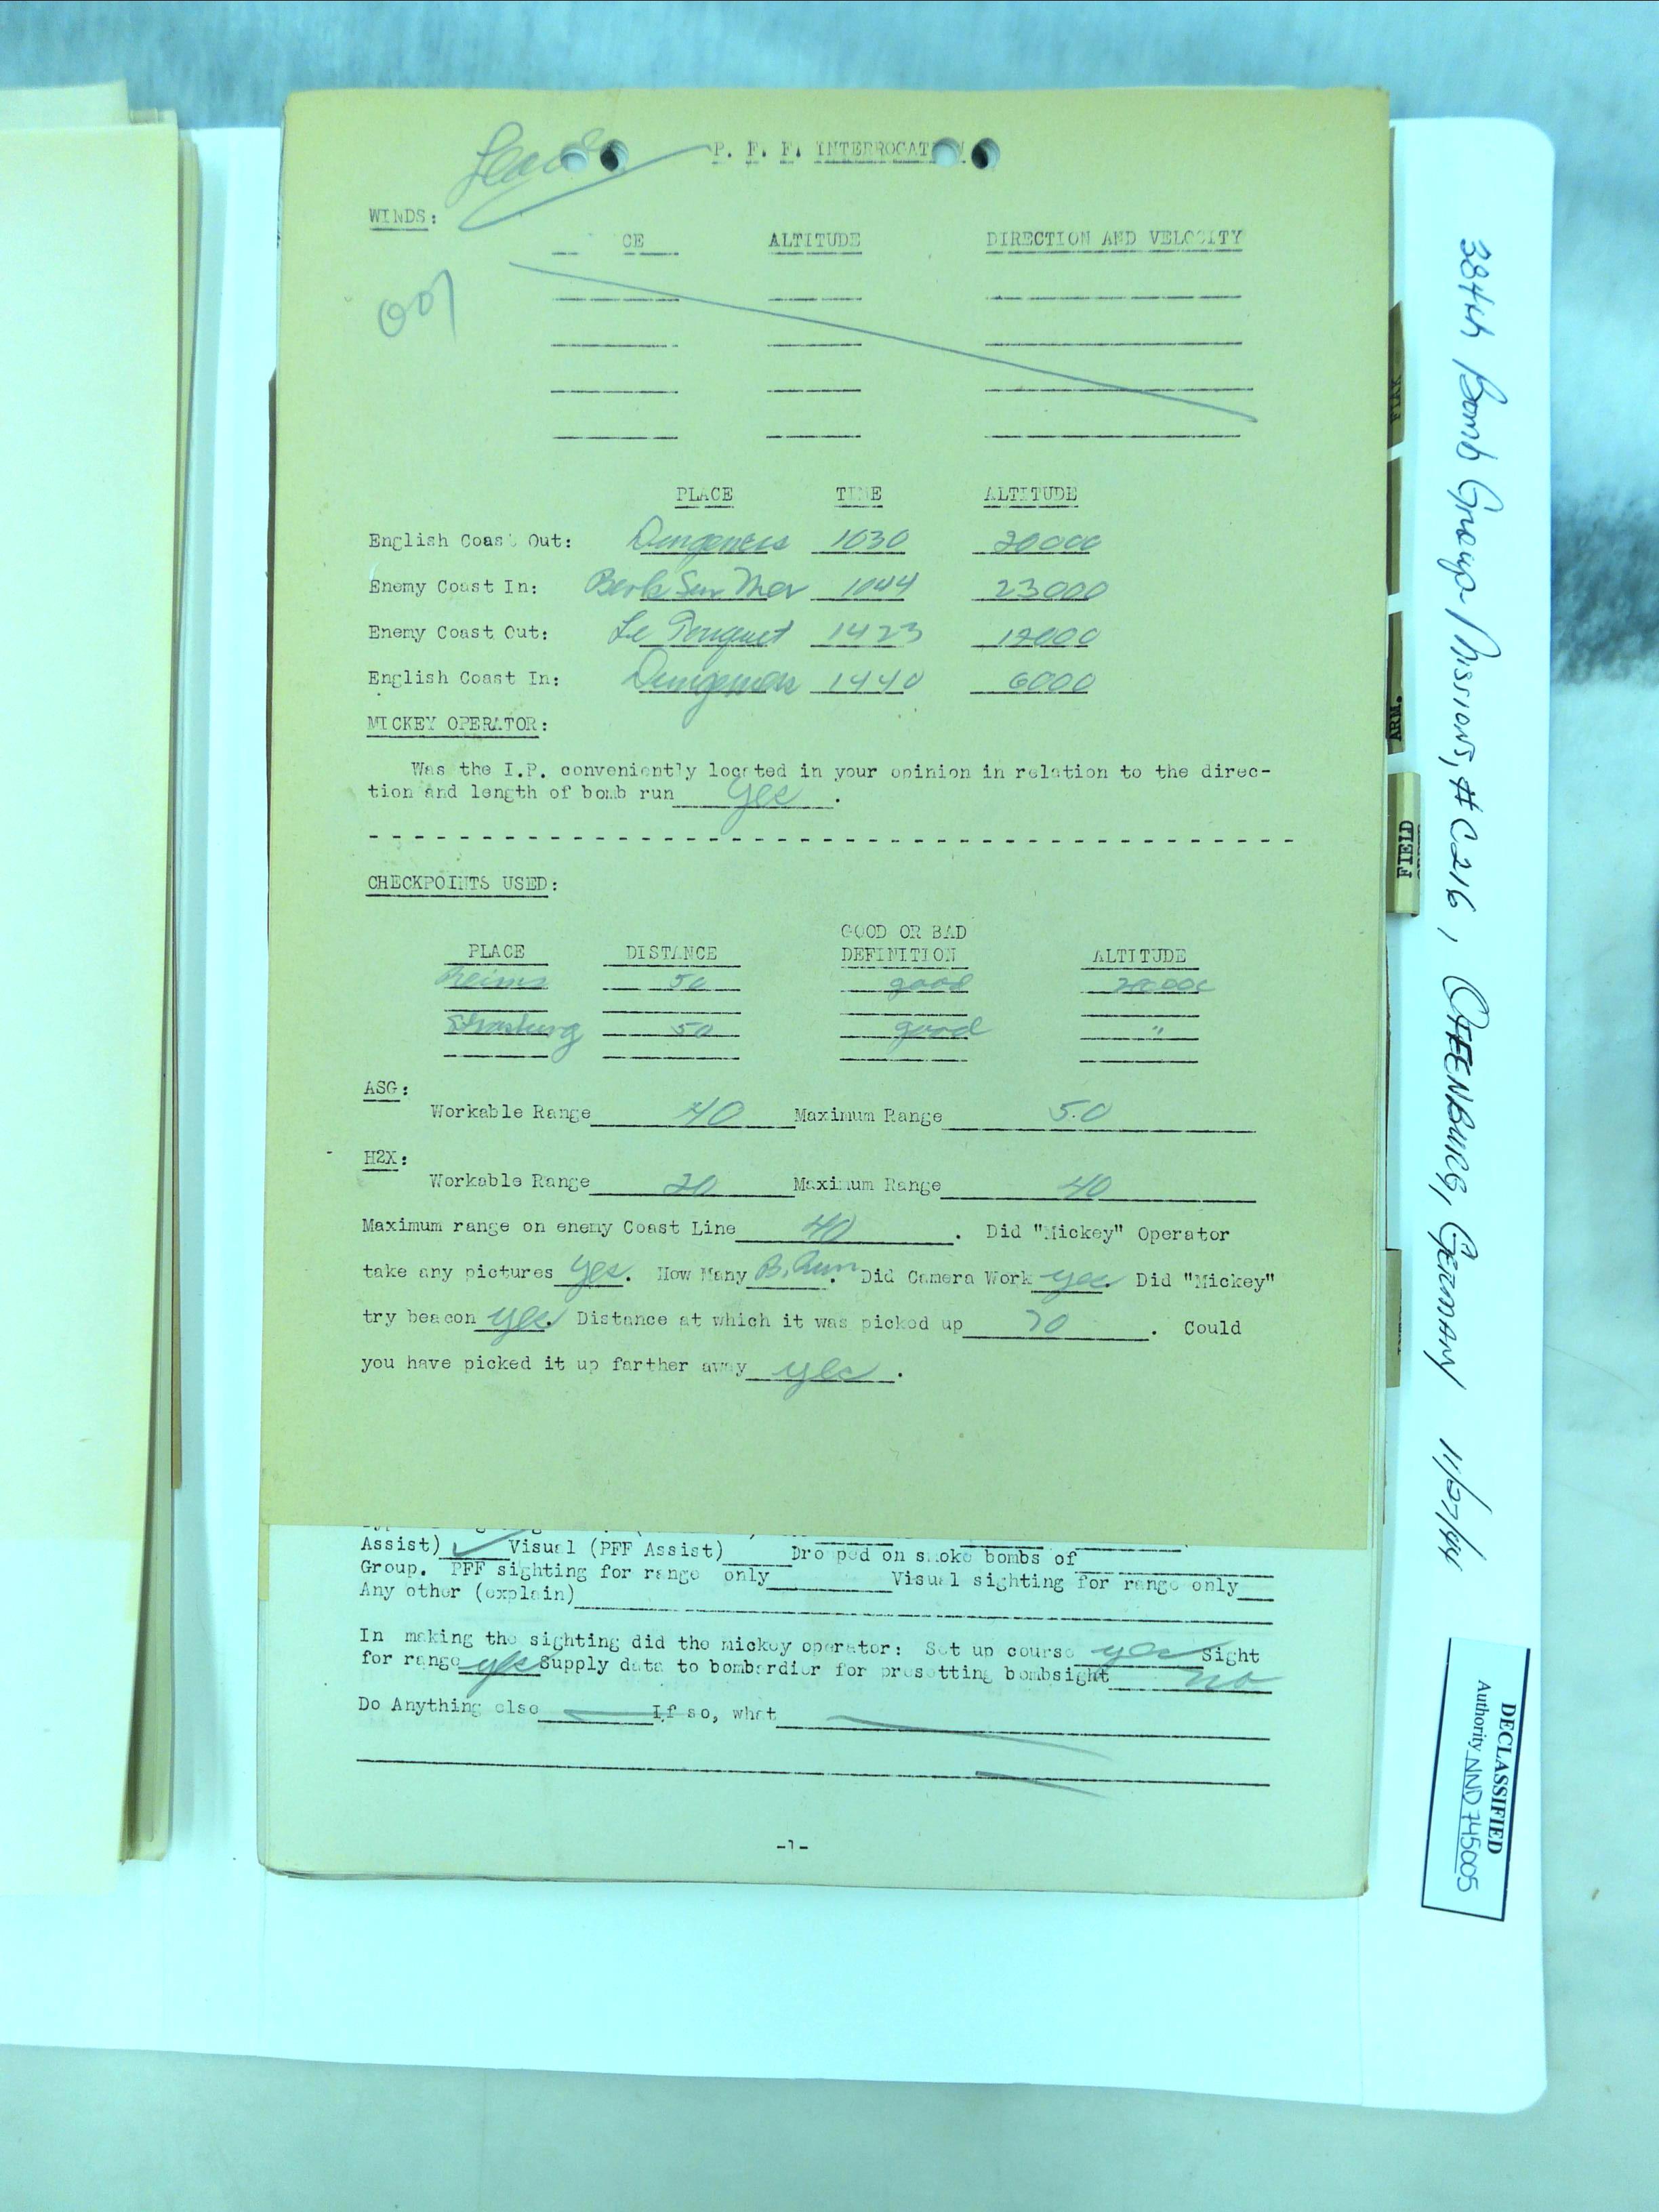 Lead
P. F. F. INTERROGAT
WINDS:
CE ALTITUDE DIRECTION AND VELOCITY
PLACE TIME ALTITUDE
English Coast Out: Dungeness 1030 20000
Enemy Coast In: Berk Sur Mer 1044 23000
Enemy Coast Out: Le Touquet 1423 12000
English Coast In: Dungeness 1440 6000
MICKEY OPERATOR:
Was the I.P. conveniently located in your opinion in relation to the direc-
tion and length of bomb run yes.
CHECKPOINTS USED:
GOOD OR BAD
PLACE DISTANCE DEFINITION ALTITUDE
Reims 50 good
Strasburg 50 good "
ASG:
Workable Range 40 Maximum Range 50
H2X:
Workable Range 20 Maximum Range 40
Maximum range on enemy Coast Line 40. Did "Mickey" Operator
take any pictures yes. How Many B. Run. Did Camera Work yes. Did "Mickey"
try beacon yes. Distance at which it was picked up 70. Could
you have picked it up farther away yes.
Assist) ✓ Visual (PFF Assist) Dropped on smoke bombs of
Group. PFF sighting for range only Visual sighting for range only
Any other (explain)
In making the sighting did the mickey operator: Set up course yes Sight
for range yes Supply data to bombardier for presetting bombsight no
Do Anything else If so, what
-1-
FLAK
ARM.
FIELD
384th Bomb Group Missions, #C216, OFFENBURG, GERMANY 11/27/44
DECLASSIFIED
Authority NND 745005